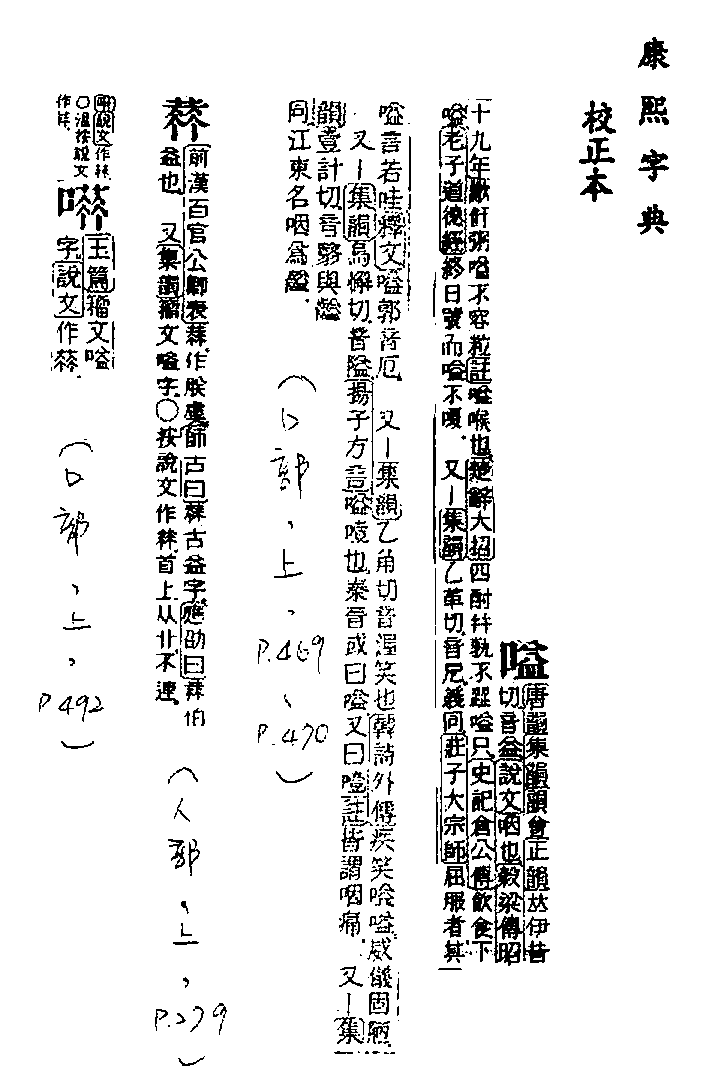 康熙字典
校正本
嗌唐韻集韻韻會正韻𠀤伊昔
切音益說文咽也穀梁傳昭
十九年歠飦粥嗌不容粒註嗌喉也楚辭大招四酎幷孰不歰嗌只史記倉公傳飮食下
嗌老子道德經終日號而嗌不嗄 又丨集韻乙革切音戹義同莊子大宗師屈服者其
嗌言若哇釋文嗌郭音厄 又丨集韻乙角切音渥笑也韓詩外傳疾笑嗌嗌威儀固陋
又丨集韻烏懈切音隘揚子方言嗌噎也秦晉或曰嗌又曰噎註皆謂咽痛 又丨集
韻壹計切音翳與齸
同江東名咽爲齸
(口部、上、P.469、P.470)
前漢百官公卿表作朕虞師古曰古益字應劭曰伯
益也 又集韻籀文嗌字○按說文作首上从廿不連
(人部、上、P.279)
說文作
○溫按說文
作
玉篇籀文嗌
字說文作
(口部、上、P.492)